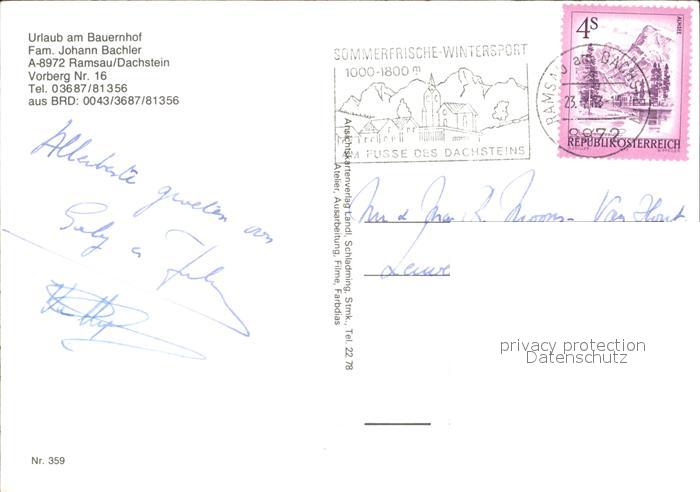 Urlaub am Bauernhof
Fam. Johann Bachler
A-8972 Ramsau/Dachstein
Vorberg Nr. 16
Tel. 03687/81356
aus BRD: 0043/3687/81356
Allerbeste groeten van
Nr. 359
Ansichtskartenverlag Landl, Schladming, Stmk., Tel. 22 78
Atelier, Ausarbeitung, Filme, Farbdias
SOMMERFRISCHE-WINTERSPORT
1000-1800 m
AM FUSSE DES DACHSTEINS
RAMSAU am DACHSTEIN
23.
8972
4S
ALMSEE
REPUBLIK ÖSTERREICH
Van Hout
privacy protection
Datenschutz